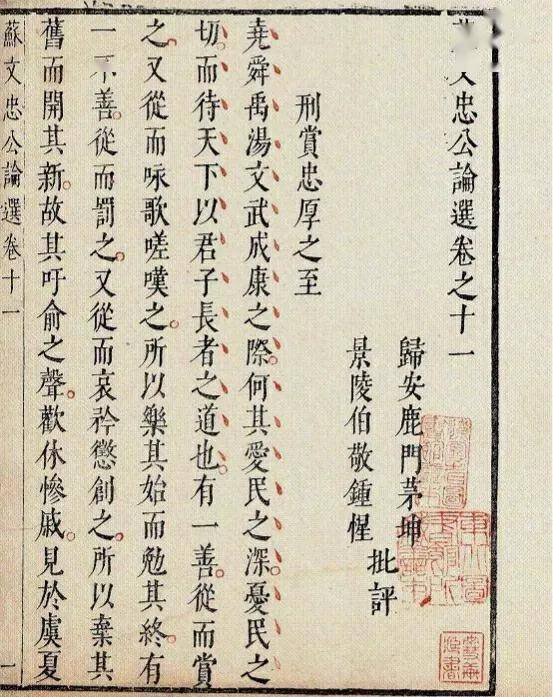 文忠公論選卷之十一
歸安鹿門茅坤
景陵伯敬鍾惺
批評
刑賞忠厚之至
堯舜禹湯文武成康之際。何其愛民之深。憂民之
切。而待天下以君子長者之道也。有一善。從而賞
之。又從而咏歌嗟嘆之。所以樂其始而勉其終。有
一不善。從而罰之。又從而哀矜懲創之。所以棄其
舊而開其新。故其吁俞之聲。歡休慘戚。見於虞夏
蘇文忠公論選卷十一
一